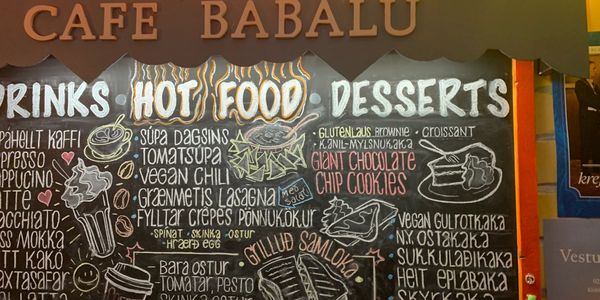 CAFE BABALU
DRINKS · HOT FOOD · DESSERTS
UPPÁHELLT KAFFI
ESPRESSO
CAPPUCINO
LATTE
MACCHIATO
SWISS MOKKA
HEITT KAKÓ
ÁVAXTASAFAR
LATTA
• SÚPA DAGSINS
• TOMATSÚPA
• VEGAN CHILI
• GRÆNMETIS LASAGNA
MEÐ SALATI
• FYLLTAR CRÊPES PÖNNUKÖKUR
- SPÍNAT - SKINKA - OSTUR
- HRÆRÐ EGG
GRILLUÐ SAMLOKA
BARA OSTUR
TOMATAR, PESTO
SKINKA OSTUR
• GLUTENLAUS BROWNIE • CROISSANT
• KANIL-MYLSNUKAKA
GIANT CHOCOLATE
CHIP COOKIES
• VEGAN GULRÓTKAKA
• N.Y. OSTAKAKA
• SÚKKULAÐIKAKA
• HEIT EPLABAKA
• SKYRKAKA
kref
Vestu